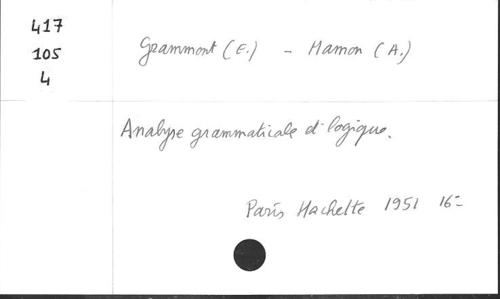 417
105
4
Grammont (E.) - Hamon (A.)
Analyse grammaticale et logique.
Paris Hachette 1951 16-